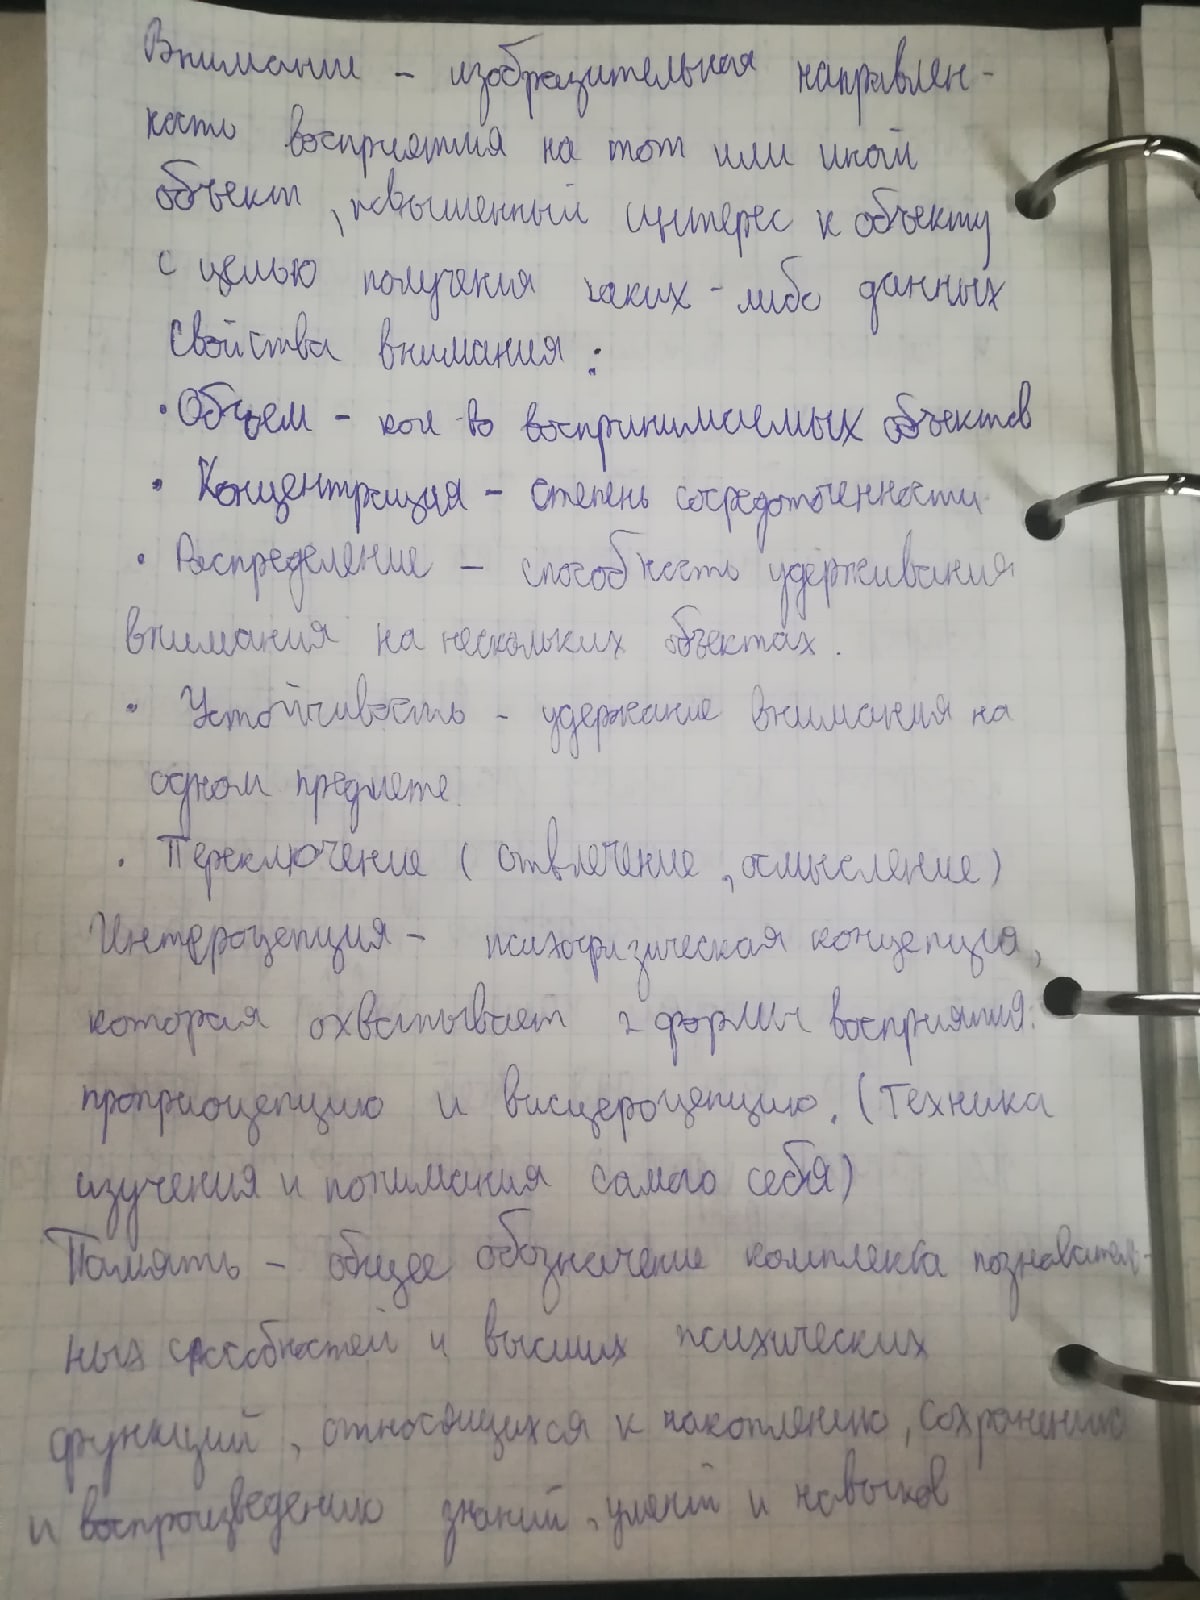 Внимание – изобразительная направлен-
ность восприятия на тот или иной
объект, повышенный интерес к объекту
с целью получения каких-либо данных
Свойства внимания:
• Объем – кол-во воспринимаемых объектов
• Концентрация – степень сосредоточенности
• Распределение – способность удерживания
внимания на нескольких объектах.
• Устойчивость – удержание внимания на
одном предмете.
• Переключение (отвлечение, осмысление)
Интероцепция – психофизическая концепция,
которая охватывает 2 формы восприятия:
проприоцепцию и висцероцепцию. (Техника
изучения и понимания самого себя)
Память – общее обозначение комплекса познаватель-
ных способностей и высших психических
функций, относящихся к накоплению, сохранению
и воспроизведению знаний, умений и навыков